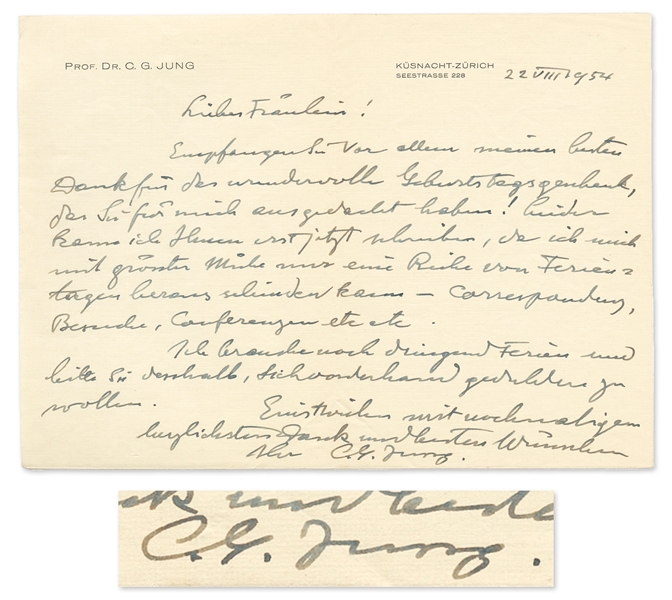 PROF. DR. C. G. JUNG
KÜSNACHT-ZÜRICH
SEESTRASSE 228
22 VIII 1954
Liebes Fräulein!
Empfangen Sie vor allem meinen besten
Dank für das wundervolle Geburtstagsgeschenk,
das Sie für mich ausgedacht haben! Leider
kann ich Ihnen erst jetzt schreiben, da ich mich
mit grösster Mühe nur eine Reihe von Ferien=
tagen heraus schinden kann – Correspondenz,
Besuche, Conferenzen etc etc.
Ich brauche noch dringend Ferien und
bitte Sie desshalb, sich vorderhand gedulden zu
wollen.
Einstweilen mit nochmaligem
herzlichstem Dank und besten Wünschen
Ihr C. G. Jung.
C. G. Jung.